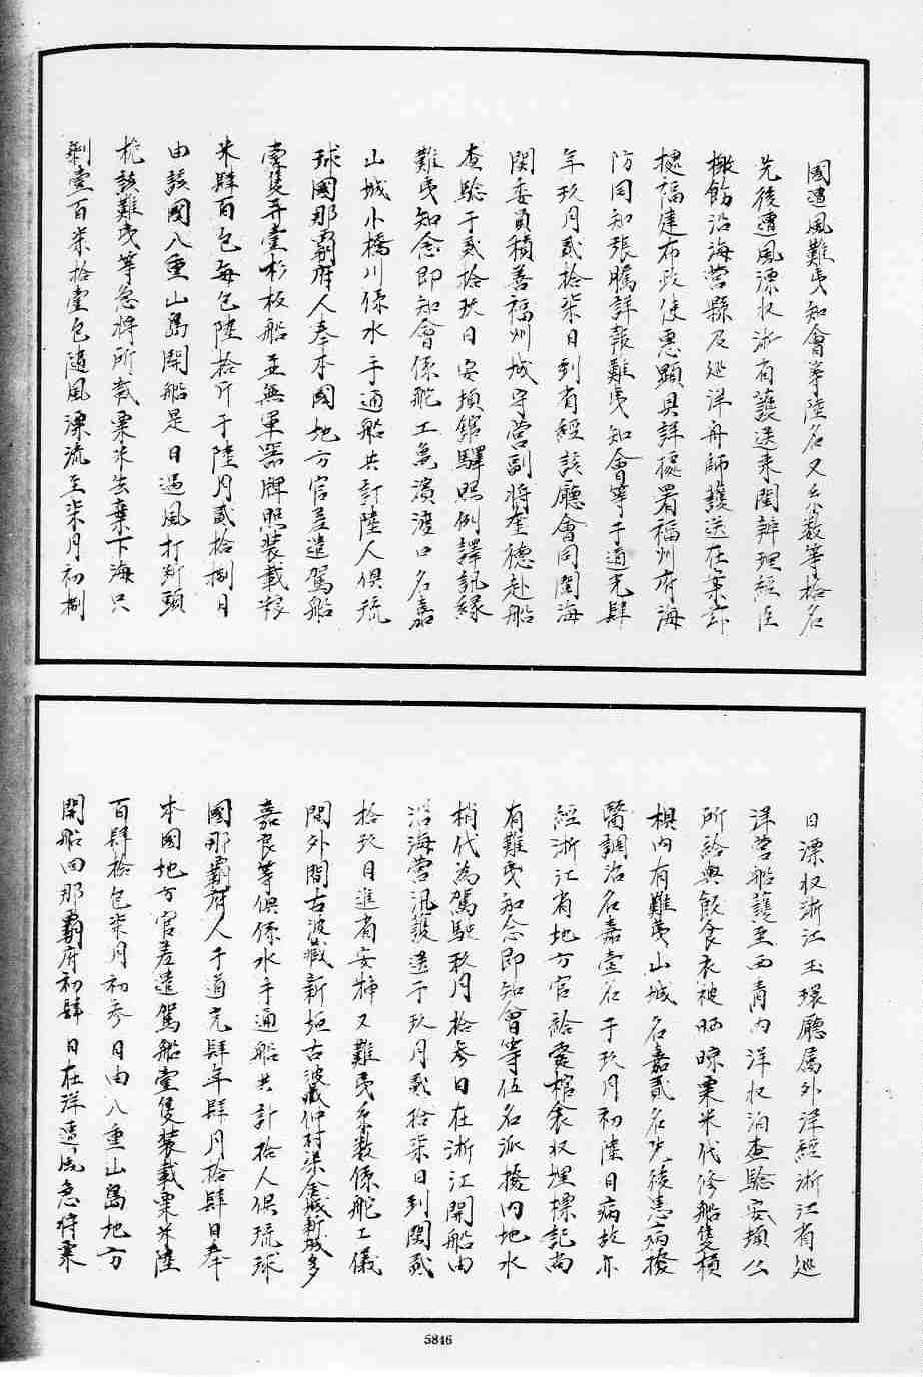 國遭風難夷知會等陸名又么数等拾名
先後遭風漂收浙省護送來閩辦理經臣
檄飭沿海營縣及巡洋舟師護送在案茲
據福建布政使惠顯具詳據署福州府海
防同知張騰詳報難夷知會等于道光肆
年玖月貳拾柒日到省經該廳會同閩海
関委員積善福州城守營副將奎德赴船
查驗于貳拾玖日安頓館驛照例譯訊緣
難夷知念即知會係舵工烏濱渡口名嘉
山城小橋川係水手通船共計陸人俱琉
球國那霸府人奉本國地方官差遣駕船
壹隻并壹杉板船並無軍器牌照裝載粮
米肆百包每包陸拾斤于陸月貳拾捌日
由該國八重山島開船是日遇風打断頭
桅該難夷等急將所載粟米去棄下海只
剩壹百柒拾壹包隨風漂流至柒月初捌
日漂收浙江玉環廳屬外洋經浙江省巡
洋營船護至西青內洋收泊查驗安頓么
所給與飯食衣被晒晾粟米代修船隻槓
椇內有難夷山城名嘉貳名先後患病撥
醫調治名嘉壹名于玖月初陸日病故亦
經浙江省地方官給棺衾收埋標記尚
有難夷知念即知會等伍名派撥內地水
梢代為駕駛玖月拾叁日在浙江開船由
沿海營汛護送于玖月貳拾柒日到閩貳
拾玖日進省安揷又難夷么数係舵工儀
間外間古波藏新垣古波藏仲村渠金城新城多
嘉良等俱係水手通船共計拾人俱琉球
國那霸府人于道光肆年肆月拾肆日奉
本國地方官差遣駕船壹隻裝載粟米陸
百肆拾包柒月初叁日由八重山島地方
開船回那霸府初肆日在洋遭風急將粟
5846